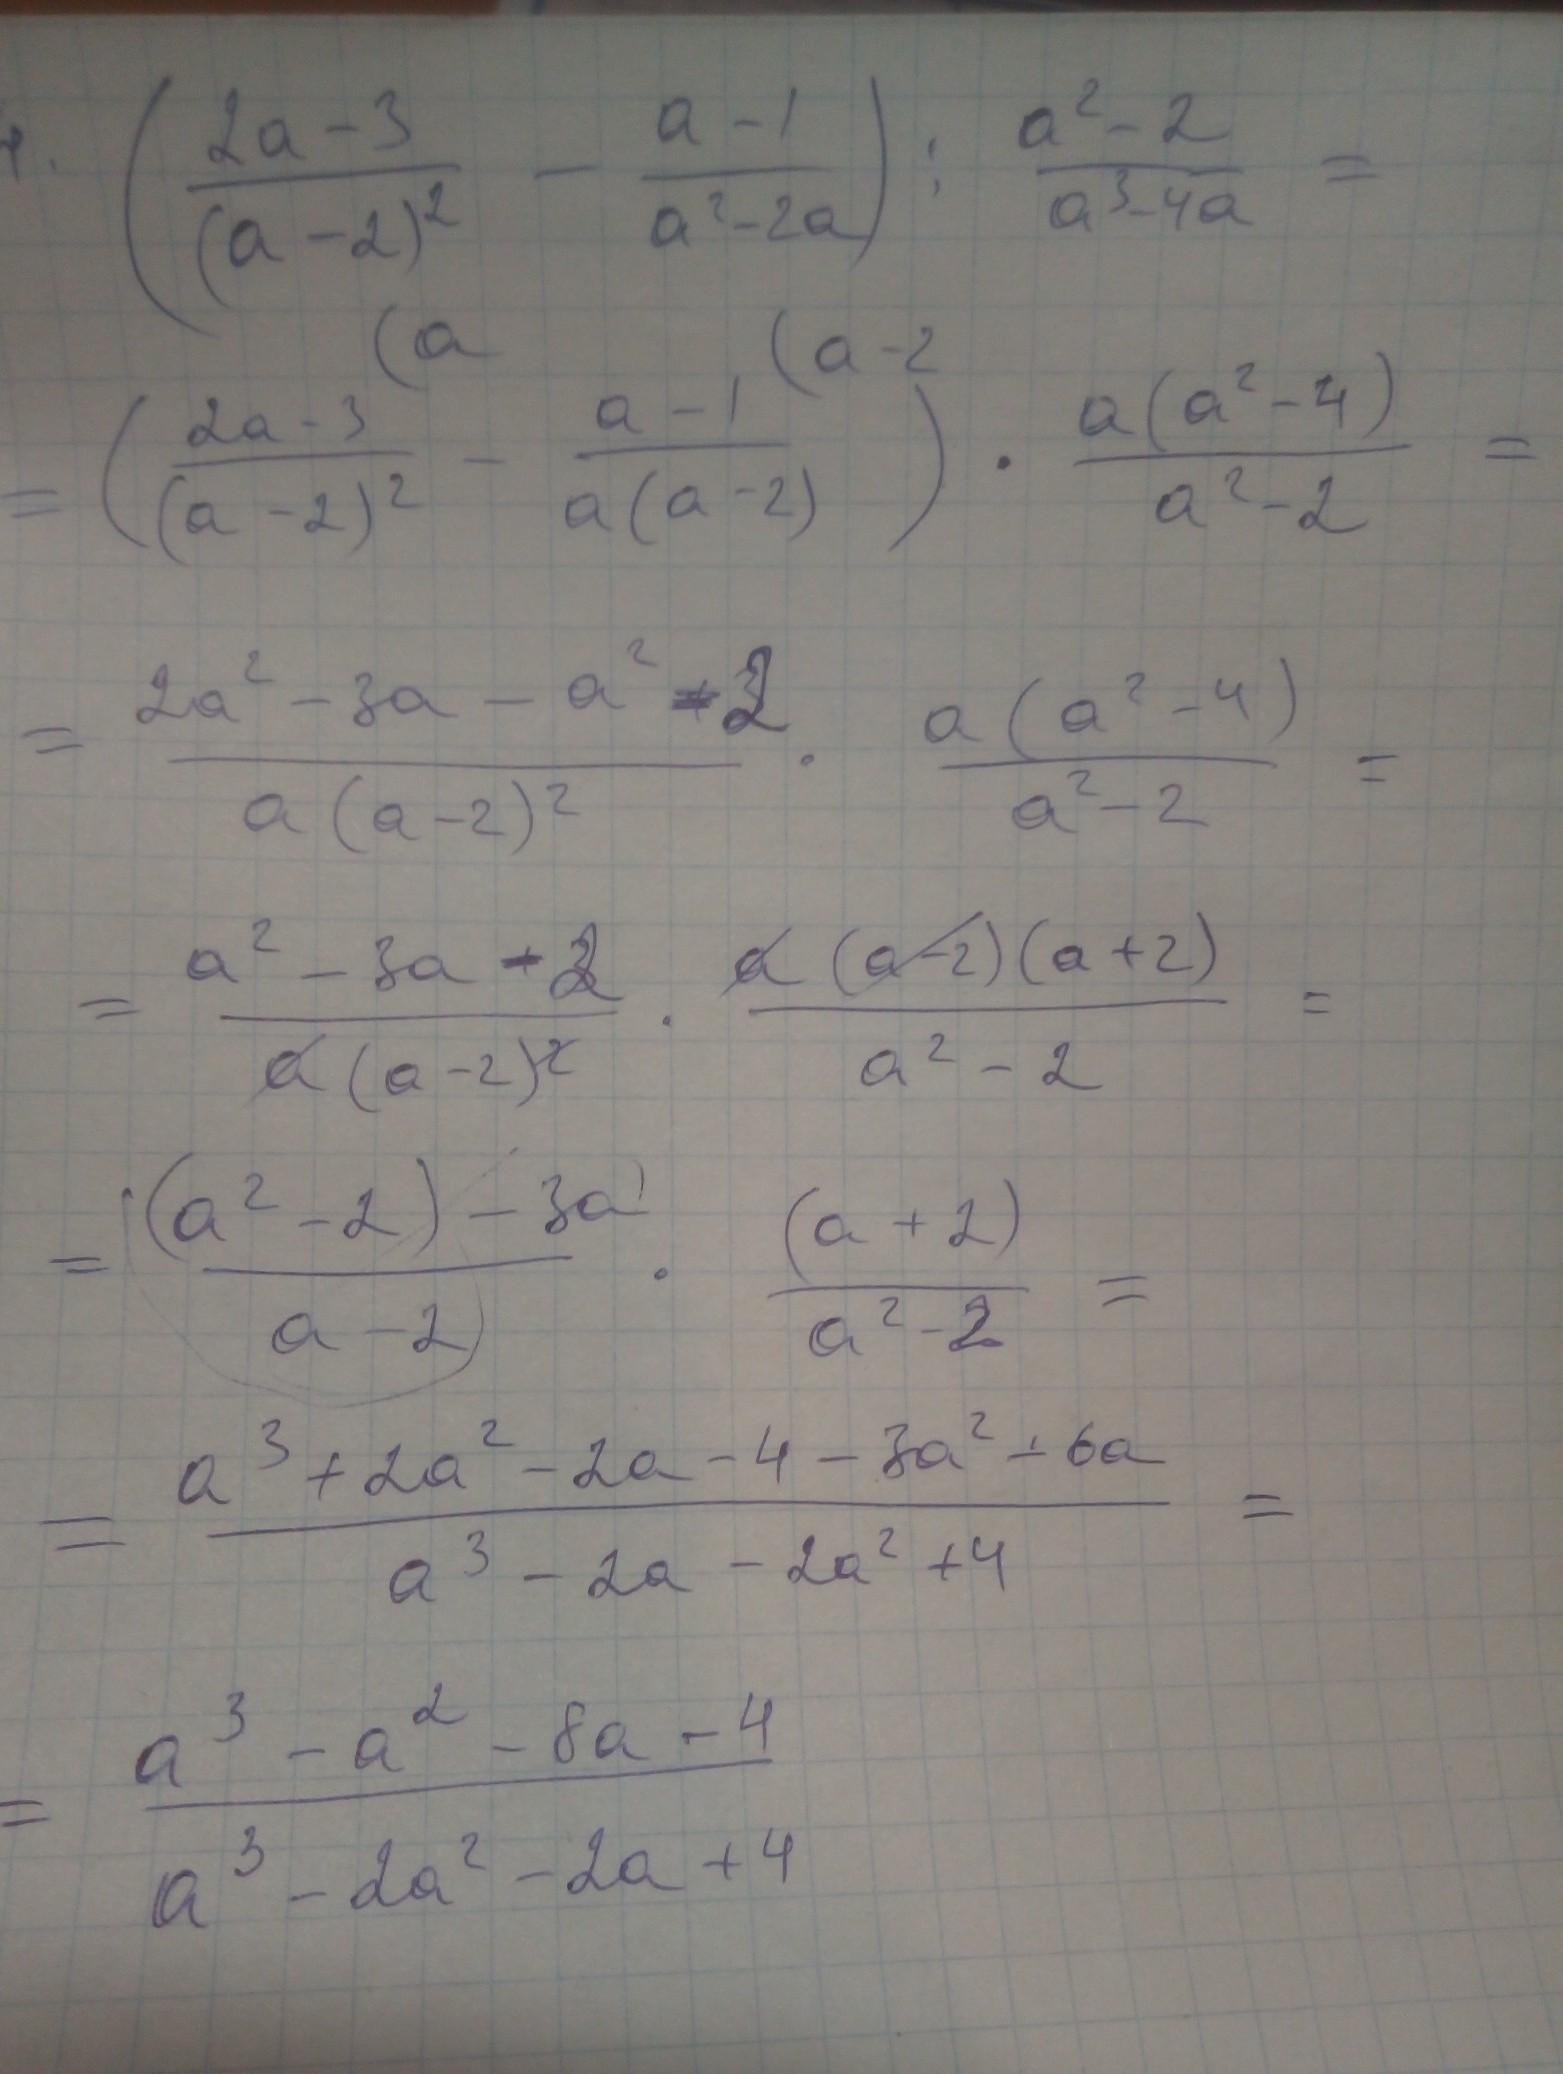 (2a-3/(a-2)² - a-1/a²-2a) : a²-2/a³-4a =
(a (a-2
= (2a-3/(a-2)² - a-1/a(a-2)) · a(a²-4)/a²-2 =
= 2a²-3a-a²-2/a(a-2)² · a(a²-4)/a²-2 =
= a²-3a-2/a(a-2)² · a(a-2)(a+2)/a²-2 =
= (a²-2)-3a/a-2 · (a+2)/a²-2 =
= a³+2a²-2a-4-3a²-6a/a³-2a-2a²+4 =
= a³-a²-8a-4/a³-2a²-2a+4